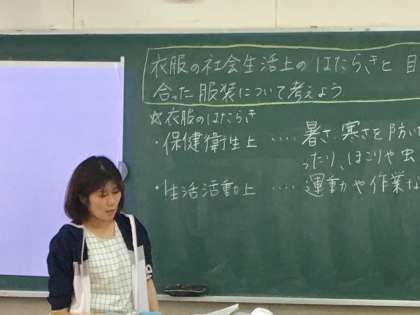 衣服の社会生活上のはたらきと目
合った服装について考えよう
☆衣服のはたらき
・保健衛生上 ‥‥ 暑さ、寒さを防い
ったり、ほこりや虫
・生活活動上 ‥‥ 運動や作業な